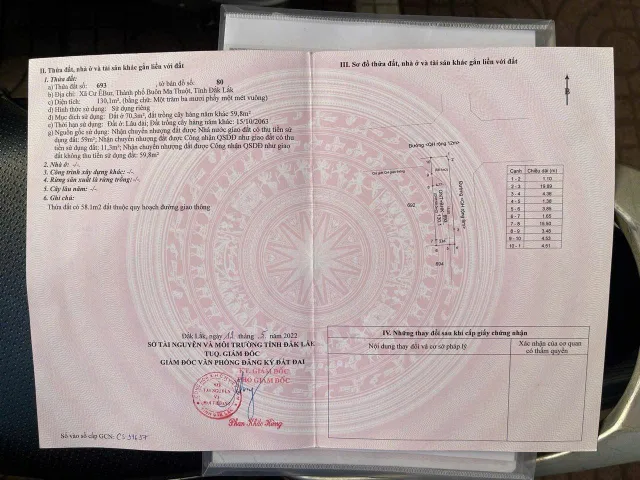 II. Thửa đất, nhà ở và tài sản khác gắn liền với đất
1. Thửa đất:
a) Thửa đất số: 693 , tờ bản đồ số: 80
b) Địa chỉ: Xã Cư ÊBur, Thành phố Buôn Ma Thuột, Tỉnh Đắk Lắk
c) Diện tích: 130,1m², (bằng chữ: Một trăm ba mươi phẩy một mét vuông)
d) Hình thức sử dụng: Sử dụng riêng
đ) Mục đích sử dụng: Đất ở 70,3m², đất trồng cây hàng năm khác 59,8m²
e) Thời hạn sử dụng: Đất ở: Lâu dài; Đất trồng cây hàng năm khác: 15/10/2063
g) Nguồn gốc sử dụng: Nhận chuyển nhượng đất được Nhà nước giao đất có thu tiền sử
dụng đất: 59m²; Nhận chuyển nhượng đất được Công nhận QSDĐ như giao đất có thu
tiền sử dụng đất: 11,3m²; Nhận chuyển nhượng đất được Công nhận QSDĐ như giao
đất không thu tiền sử dụng đất: 59,8m²
2. Nhà ở: -/-
3. Công trình xây dựng khác: -/-
4. Rừng sản xuất là rừng trồng: -/-
5. Cây lâu năm: -/-
6. Ghi chú:
Thửa đất có 58.1m2 đất thuộc quy hoạch đường giao thông
Đắk Lắk, ngày 11 tháng 5 năm 2022
SỞ TÀI NGUYÊN VÀ MÔI TRƯỜNG TỈNH ĐẮK LẮK
TUQ. GIÁM ĐỐC
GIÁM ĐỐC VĂN PHÒNG ĐĂNG KÝ ĐẤT ĐAI
KT. GIÁM ĐỐC
PHÓ GIÁM ĐỐC
Phan Khắc Hùng
Số vào sổ cấp GCN: CS 39657
III. Sơ đồ thửa đất, nhà ở và tài sản khác gắn liền với đất
B
Đường <QH rộng 12m>
692
694
Cạnh Chiều dài (m)
1 - 2 1.10
2 - 3 19.89
3 - 4 4.38
4 - 5 1.38
5 - 6 3.86
6 - 7 1.65
7 - 8 19.50
8 - 9 3.48
9 - 10 4.52
10 - 1 4.81
IV. Những thay đổi sau khi cấp giấy chứng nhận
Nội dung thay đổi và cơ sở pháp lý
Xác nhận của cơ quan
có thẩm quyền